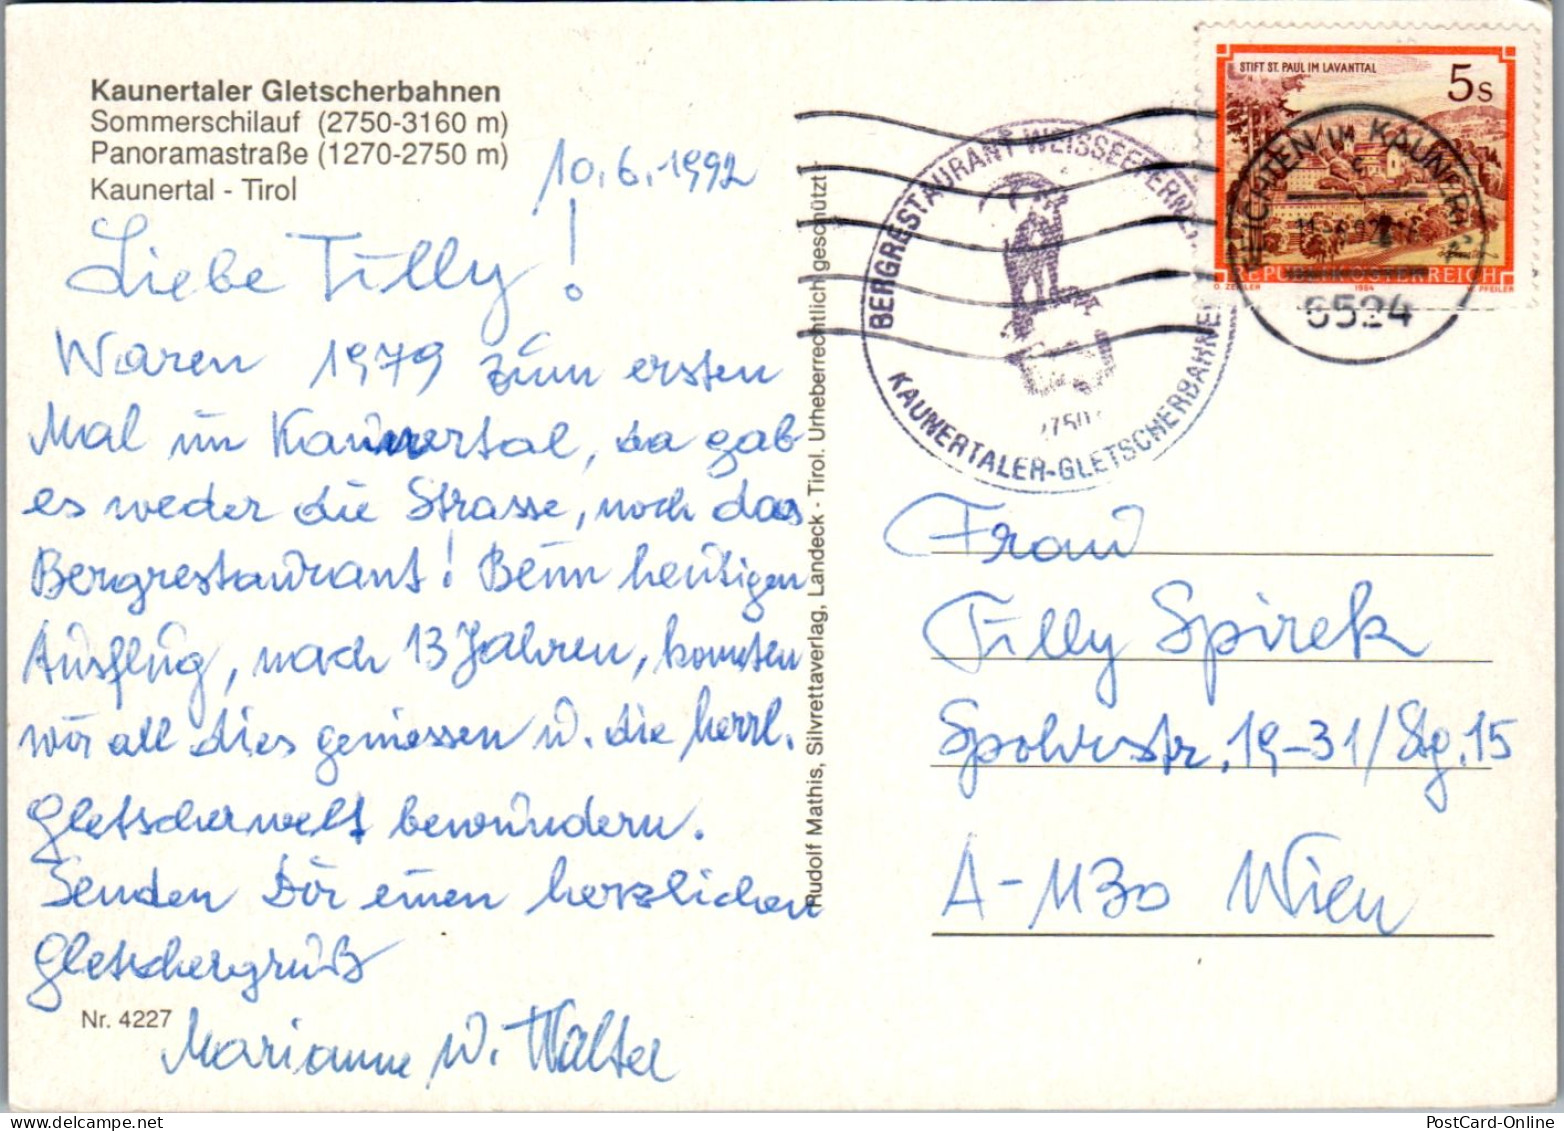 Kaunertaler Gletscherbahnen
Sommerschilauf (2750-3160 m)
Panoramastraße (1270-2750 m)
Kaunertal - Tirol
10.6.1992
Liebe Tilly!
Waren 1979 zum ersten
Mal im Kaunertal, da gab
es weder die Strasse, noch das
Bergrestaurant! Beim heutigen
Ausflug, nach 13 Jahren, konnten
wir all dies geniessen u. die herrl.
Gletscherwelt bewundern.
Senden Dir einen herzlichen
Gletschergruß
Marianne u. Walter
Nr. 4227
Rudolf Mathis, Silvrettaverlag, Landeck - Tirol. Urheberrechtlich geschützt
BERGRESTAURANT WEISSEEFERNER
KAUNERTALER-GLETSCHERBAHNEN
2750
STIFT ST. PAUL IM LAVANTTAL
5 S
REPUBLIK ÖSTERREICH
1984
PFEILER
FEICHTEN IM KAUNERT
6524
Frau
Tilly Spirek
Spohrstr. 19-31/Stg. 15
A-1130 Wien
PostCard-Online